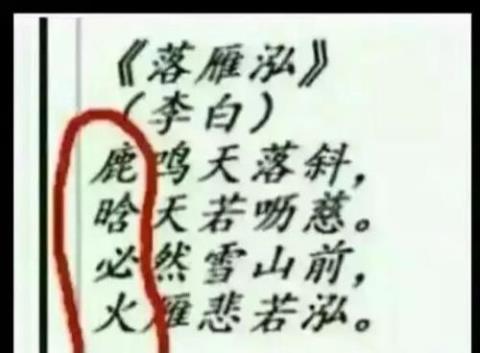 《落雁泓》
（李白）
鹿鸣天落斜，
晗天若呖慈。
必然雪山前，
火雁悲若泓。